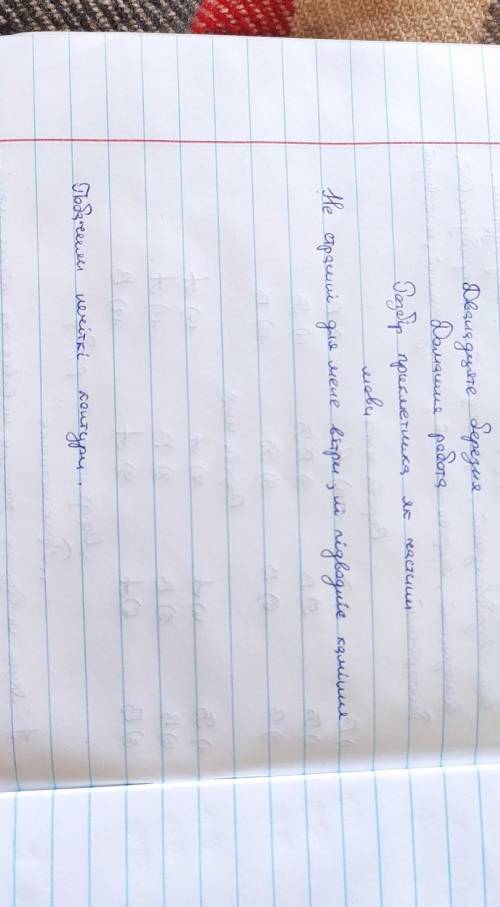 Дванадцяте березня
Домашня робота
Розбір прикметника як частини
мови
Не страшні для мене вітри, ні підводнє каміння
Побачили нечіткі контури.